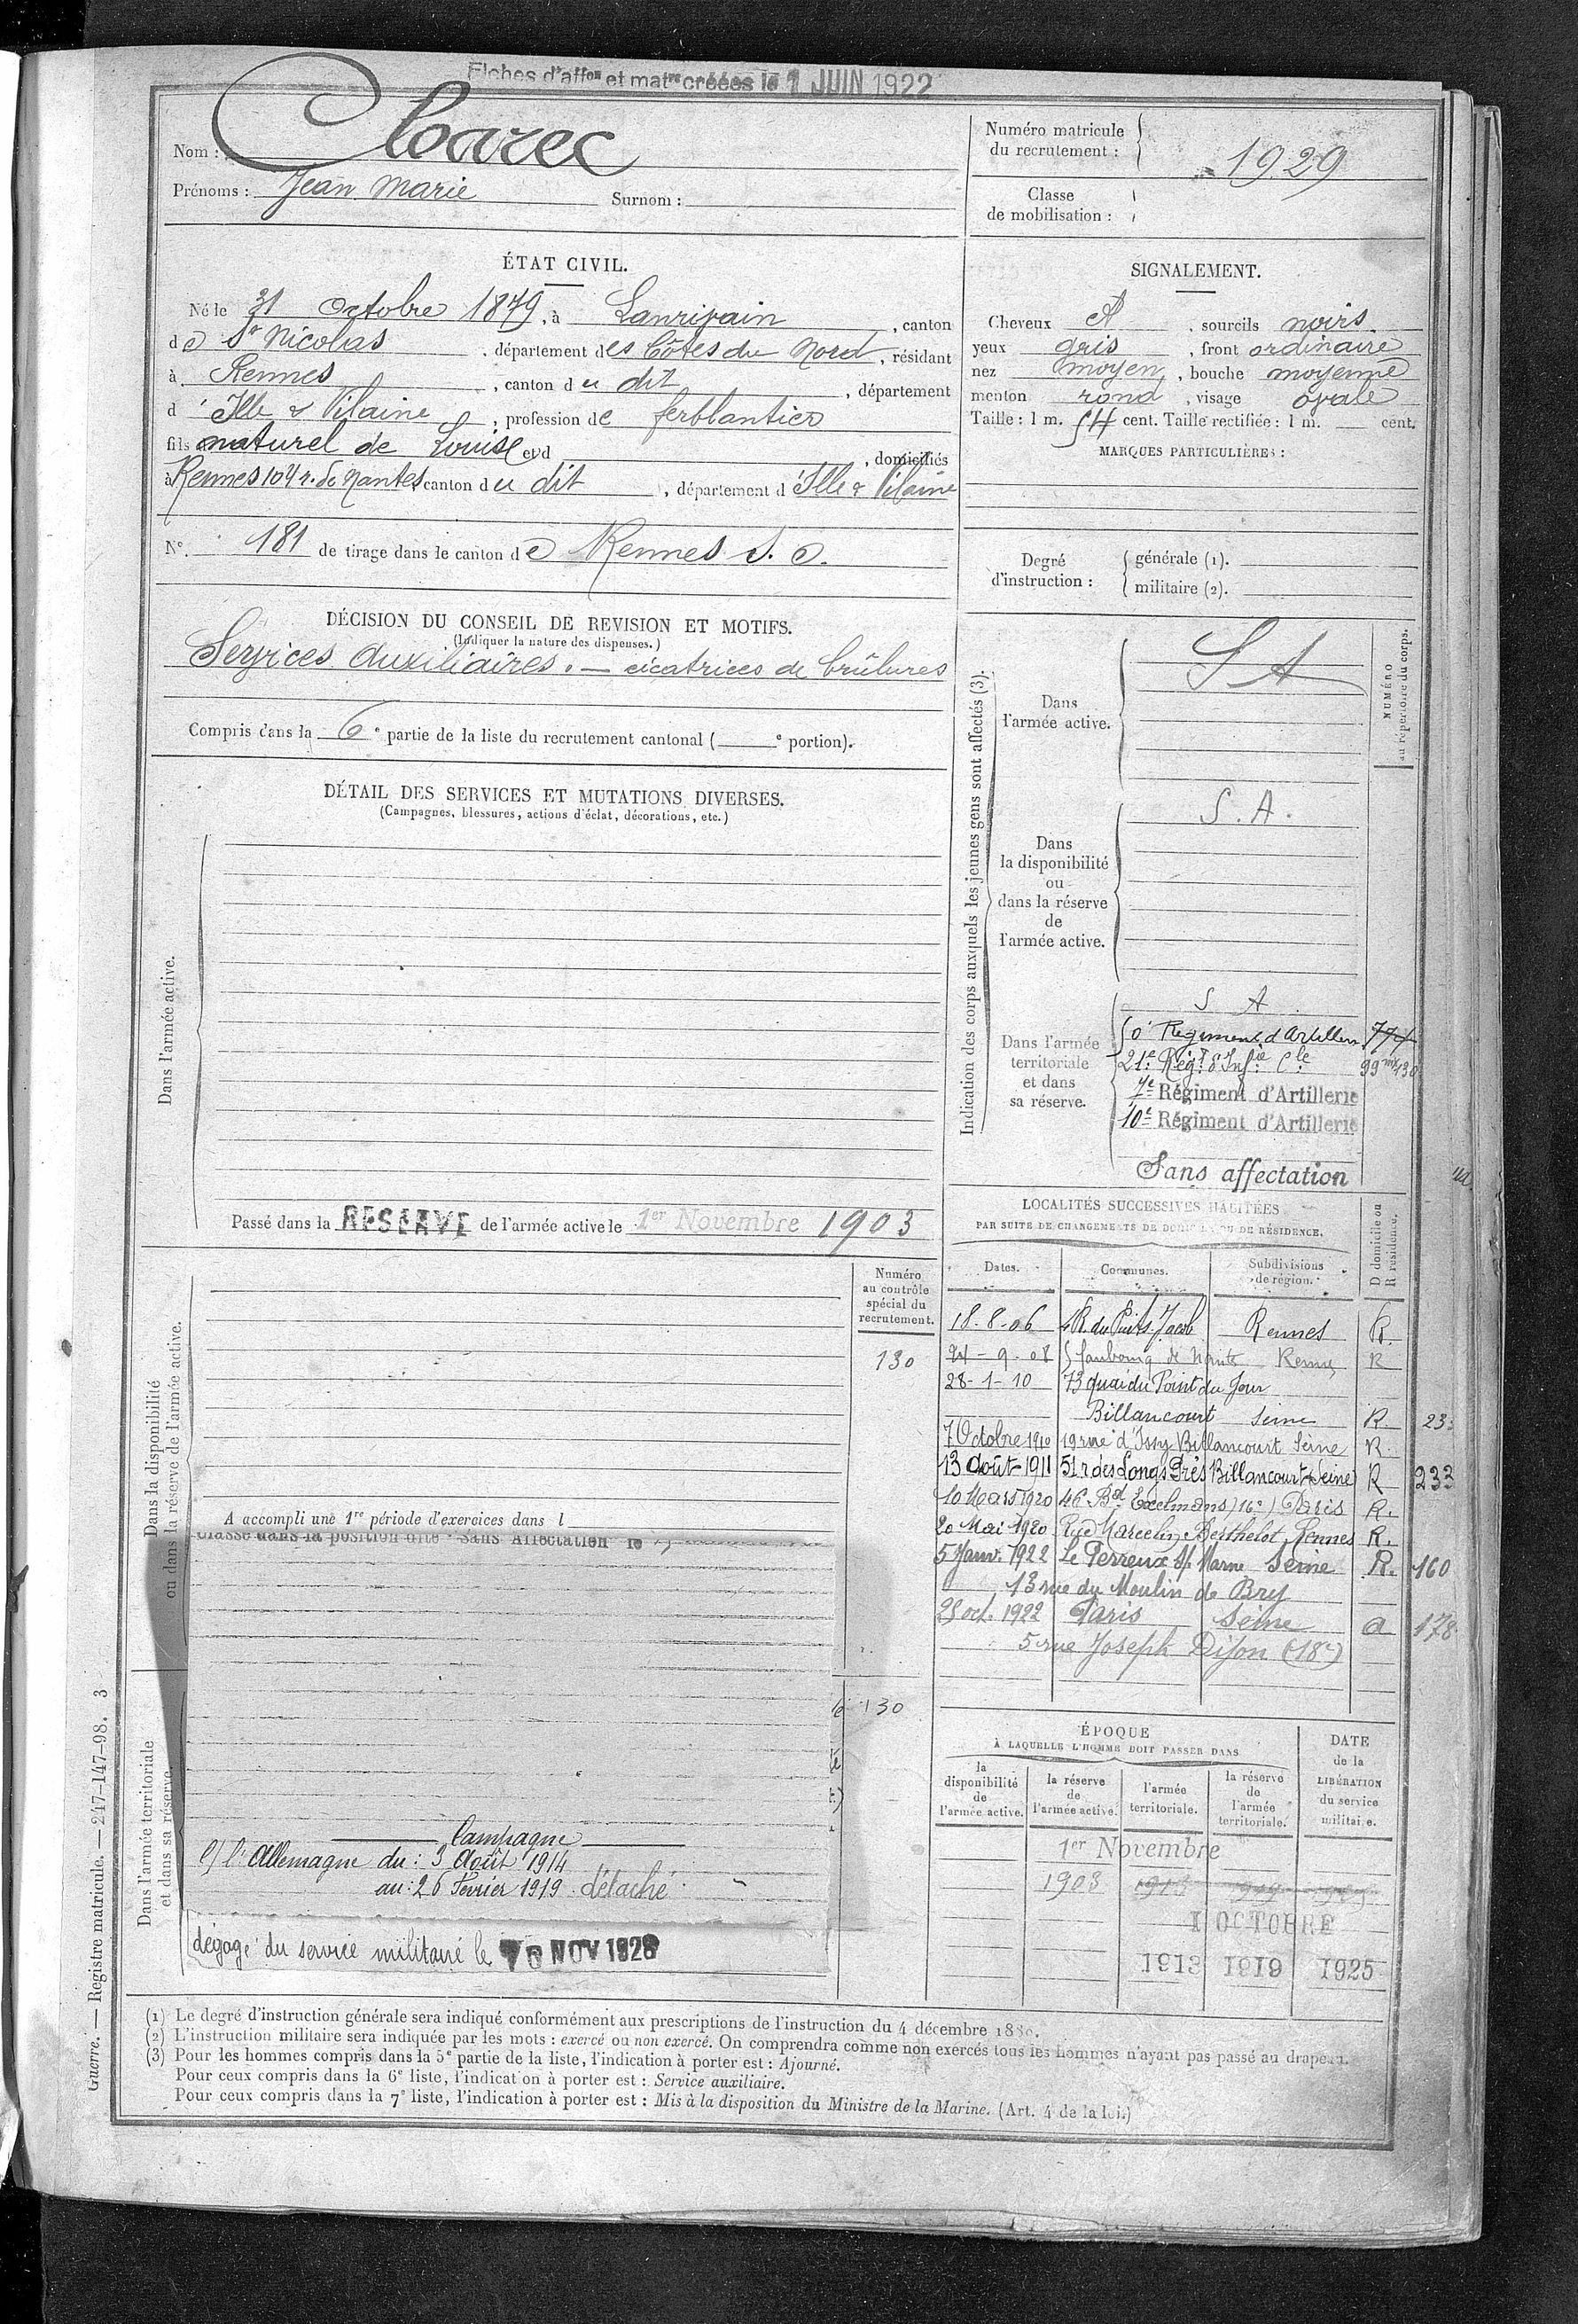 Fiches d'affon et matre créées le 1 JUIN 1922
Nom : Cloarec
Prénoms : Jean Marie Surnom :
Numéro matricule du recrutement : 1929
Classe de mobilisation :
ÉTAT CIVIL.
Né le 31 Octobre 1879, à Lanrivain, canton
de St Nicolas, département des Côtes du Nord, résidant
à Rennes, canton du dit, département
d'Ille & Vilaine, profession de ferblantier
fils naturel de Louise et d , domiciliés
à Rennes 104 r. de Nantes, canton du dit, département d'Ille & Vilaine
N° 181 de tirage dans le canton de Rennes S. O.
SIGNALEMENT.
Cheveux et, sourcils noirs
yeux gris, front ordinaire
nez moyen, bouche moyenne
menton rond, visage ovale
Taille : 1 m. 54 cent. Taille rectifiée : 1 m. — cent.
MARQUES PARTICULIÈRES :
Degré d'instruction : générale (1).
militaire (2).
DÉCISION DU CONSEIL DE REVISION ET MOTIFS.
(Indiquer la nature des dispenses.)
Services Auxiliaires. — cicatrices de brûlures
Compris dans la 6e partie de la liste du recrutement cantonal ( e portion).
DÉTAIL DES SERVICES ET MUTATIONS DIVERSES.
(Campagnes, blessures, actions d'éclat, décorations, etc.)
Dans l'armée active.
Passé dans la RÉSERVE de l'armée active le 1er Novembre 1903
Indication des corps auxquels les jeunes gens sont affectés (3).
NUMÉRO au répertoire du corps.
Dans l'armée active.
S A
Dans la disponibilité ou dans la réserve de l'armée active.
S. A.
Dans l'armée territoriale et dans sa réserve.
S A
50e Régiment d'Artillerie 777
21e Régt d'Infie Cle
7e Régiment d'Artillerie
10e Régiment d'Artillerie
Sans affectation
LOCALITÉS SUCCESSIVES HABITÉES
PAR SUITE DE CHANGEMENTS DE DOMICILE OU DE RÉSIDENCE.
Dates. Communes. Subdivisions de région. D domicile ou R résidence.
18-8-06 4 R. du Puits Jacob Rennes R.
24-9-08 5 faubourg de Nantes Rennes R
28-1-10 73 quai du Point du Jour
Billancourt Seine R.
7 Octobre 1910 19 rue d'Issy Billancourt Seine R.
13 Août 1911 51 r des Longs Prés Billancourt (Seine) R 233
10 Mars 1920 46 Bd Exelmans (16e) Paris R.
20 Mai 1920 Rue Marcelin Berthelot Rennes R.
5 Janv. 1922 Le Perreux s/ Marne Seine R. 160
13 rue du Moulin de Bry
25 oct. 1922 Paris Seine 178
5 rue Joseph Dijon (18e)
Dans la disponibilité ou dans la réserve de l'armée active.
Numéro au contrôle spécial du recrutement.
130
A accompli une 1re période d'exercices dans l
Classé dans la position dite "Sans Affectation" le
130
Dans l'armée territoriale et dans sa réserve.
Campagne
C/ l'Allemagne du : 3 Août 1914
au : 26 Février 1919 détaché
dégagé du service militaire le NOV 1928
ÉPOQUE
À LAQUELLE L'HOMME DOIT PASSER DANS
la disponibilité de l'armée active.
la réserve de l'armée active.
l'armée territoriale.
la réserve de l'armée territoriale.
DATE de la LIBÉRATION du service militaire.
1er Novembre
1903
1 OCTOBRE
1913 1919 1925
(1) Le degré d'instruction générale sera indiqué conformément aux prescriptions de l'instruction du 4 décembre
(2) L'instruction militaire sera indiquée par les mots : exercé ou non exercé. On comprendra comme non exercés tous les hommes n'ayant pas passé au drapeau.
(3) Pour les hommes compris dans la 5e partie de la liste, l'indication à porter est : Ajourné.
Pour ceux compris dans la 6e liste, l'indication à porter est : Service auxiliaire.
Pour ceux compris dans la 7e liste, l'indication à porter est : Mis à la disposition du Ministre de la Marine. (Art. 4 de la loi.)
Guerre. — Registre matricule. — 247-147-98. 3